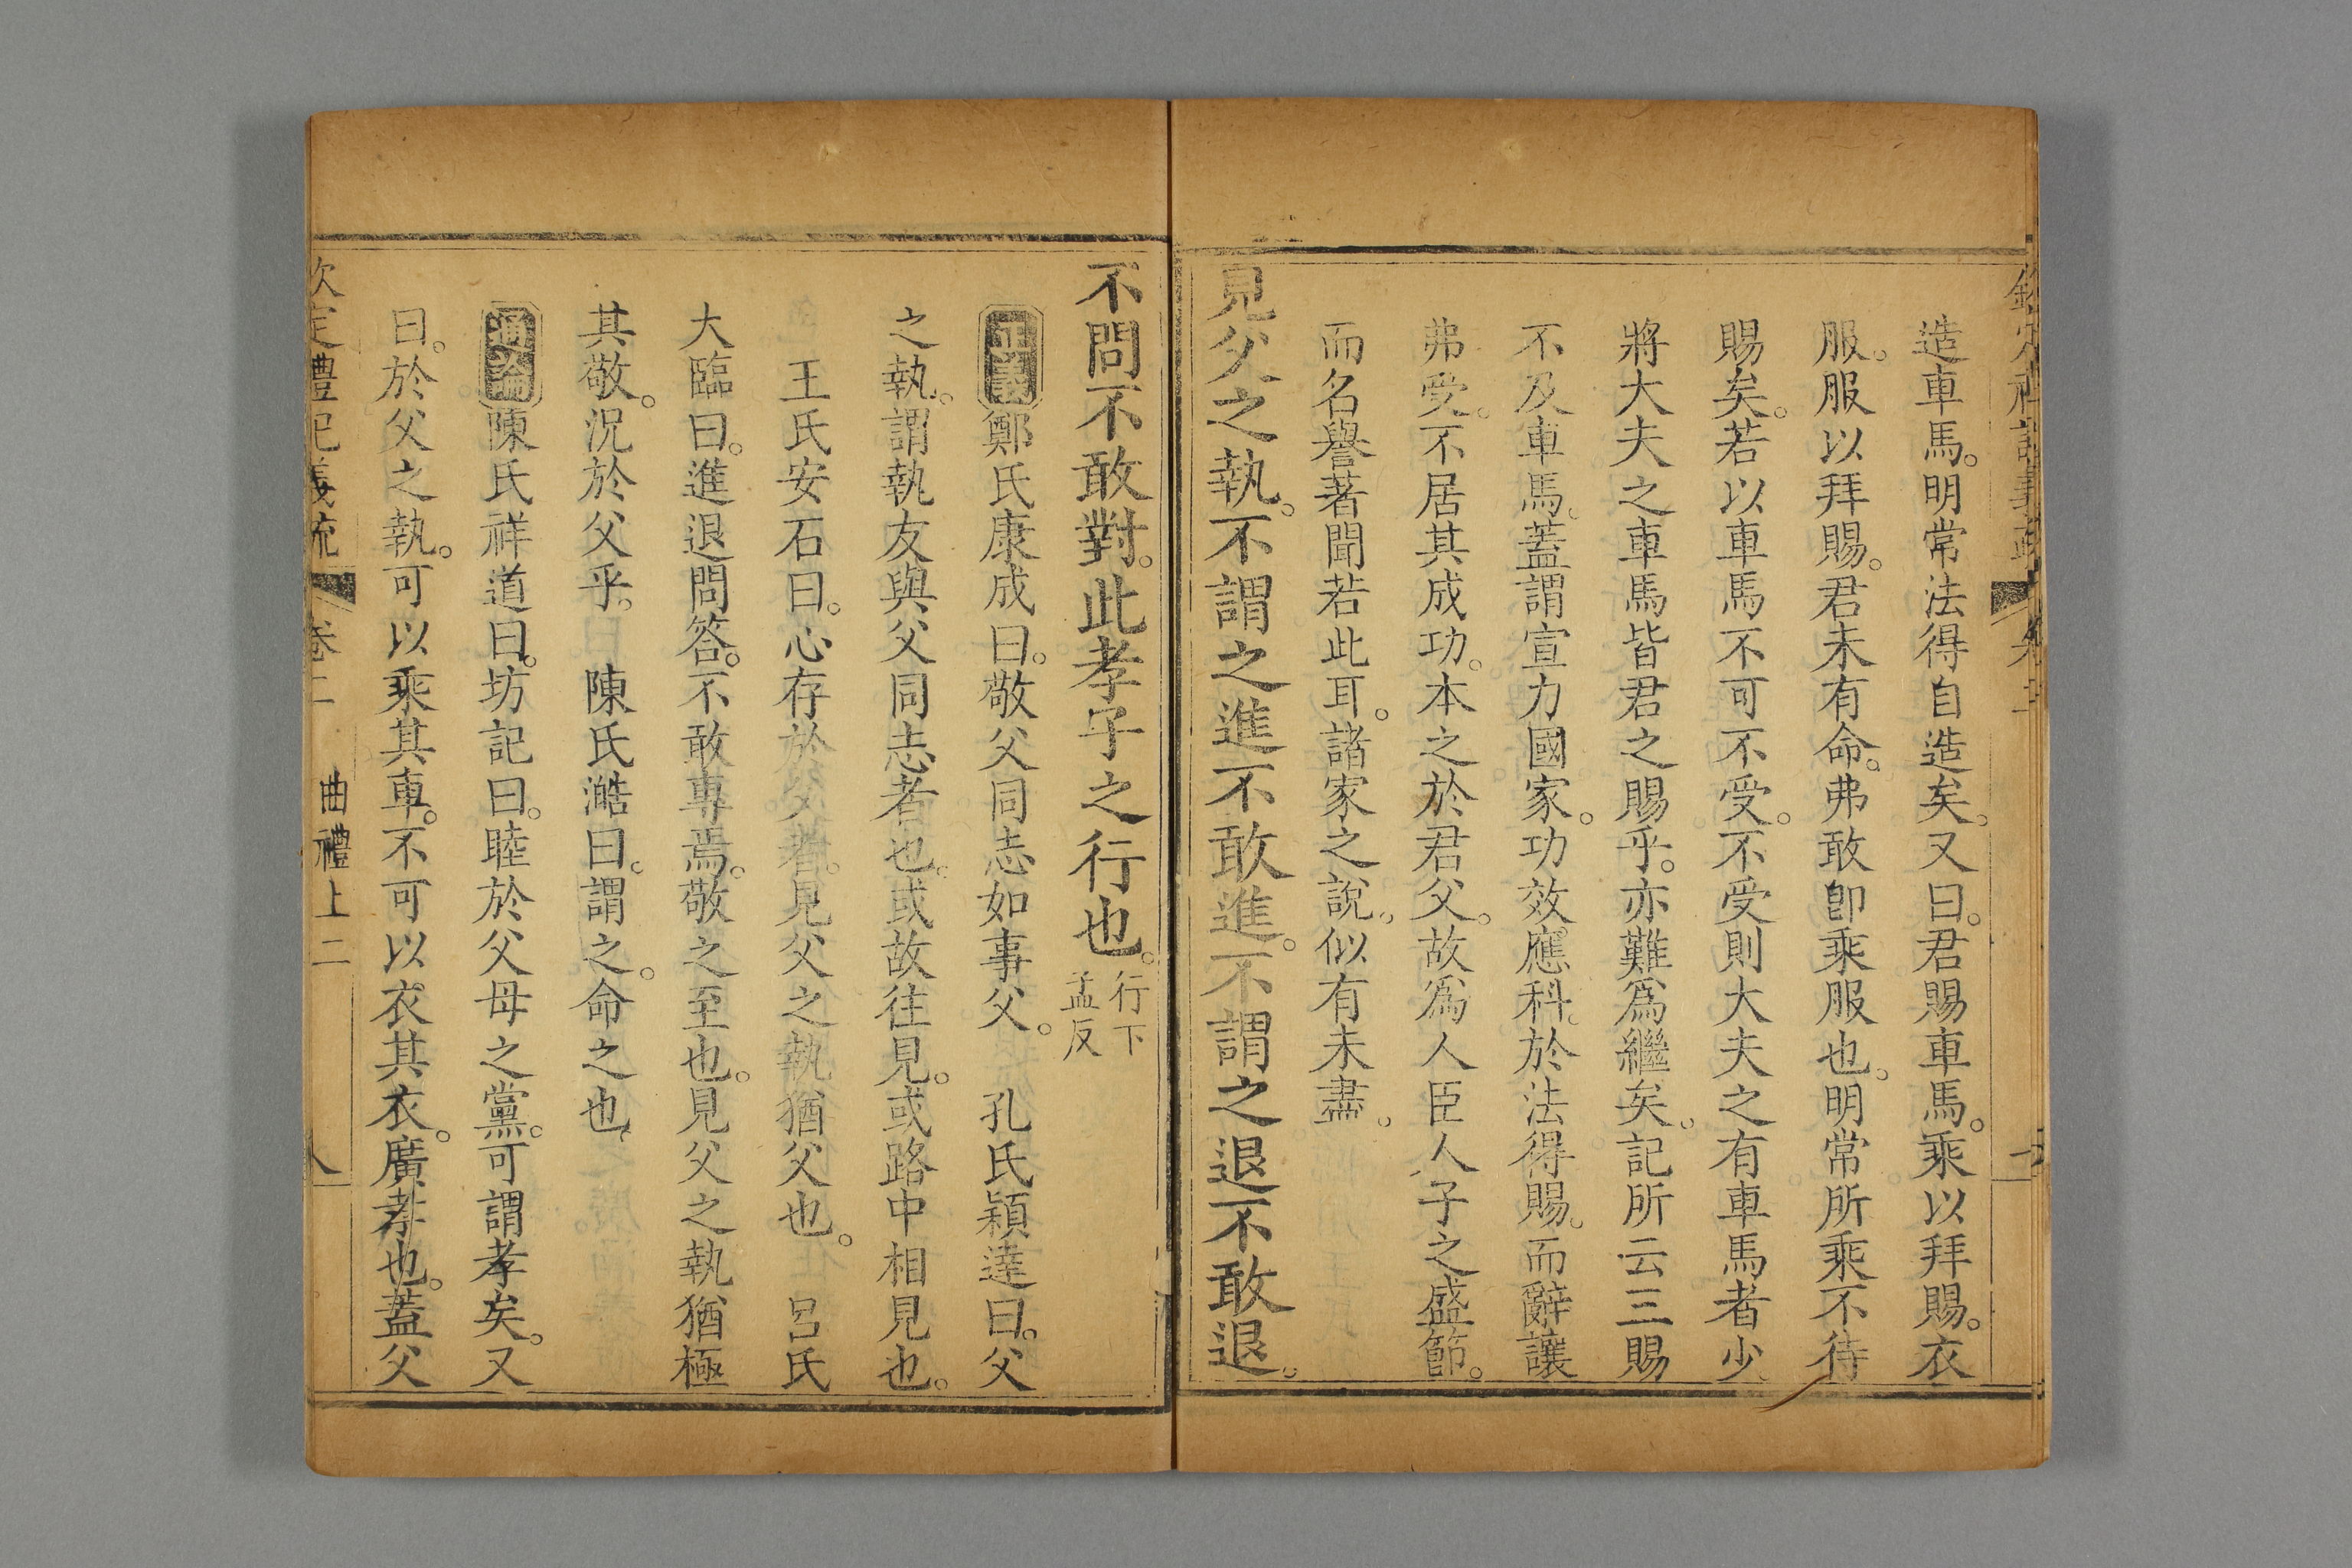 造車馬。明常法得自造矣。又曰。君賜車馬。乘以拜賜。衣
服。服以拜賜。君未有命。弗敢卽乘服也。明常所乘不待
賜矣。若以車馬不可不受。不受則大夫之有車馬者少
將大夫之車馬皆君之賜乎。亦難爲繼矣。記所云三賜
不及車馬。蓋謂宣力國家。功效應科。於法得賜。而辭讓
弗受。不居其成功。本之於君父。故爲人臣人子之盛節。
而名譽著聞若此耳。諸家之說。似有未盡。
見父之執。不謂之進不敢進。不謂之退不敢退。
不問不敢對。此孝子之行也。行下
孟反
正義鄭氏康成曰。敬父同志如事父。 孔氏穎達曰。父
之執。謂執友與父同志者也。或故往見。或路中相見也。
王氏安石曰。心存於父者。見父之執猶父也。 呂氏
大臨曰。進退問答。不敢專焉。敬之至也。見父之執猶極
其敬。況於父乎。 陳氏澔曰。謂之。命之也。
通論陳氏祥道曰。坊記曰。睦於父母之黨。可謂孝矣。又
曰。於父之執。可以乘其車。不可以衣其衣。廣孝也。蓋父
欽定禮記義疏 卷二 曲禮上二